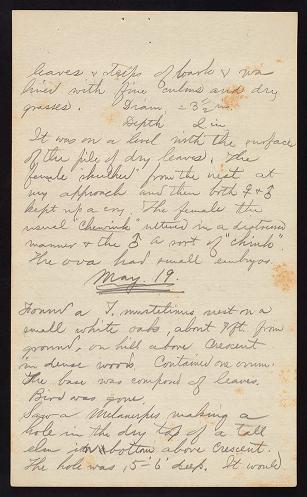 leaves & strips of bark & was
lined with fine culms and dry
grasses. Diam = 3 1/2 ins.
Depth 2 in
It was on a level with the surface
of the pile of dry leaves. The
female "skulked" from the nest at
my approach and then both ♀ & ♂
kept up a cry. The female the
usual "chewink" uttered in a distressed
manner & the ♂ a sort of "chink".
The ova had small embryos.
May. 19.
Found a T. mustelinus nest on a
small white oak, about 7 ft. from
ground, on hill above Crescent
in dense woods. Contained one ovum.
The base was composed of leaves.
Bird was gone.
Saw a Melanerpes making a
hole in the dry top of a tall
elm in bottom above Crescent.
The hole was 5"-6" deep. It would